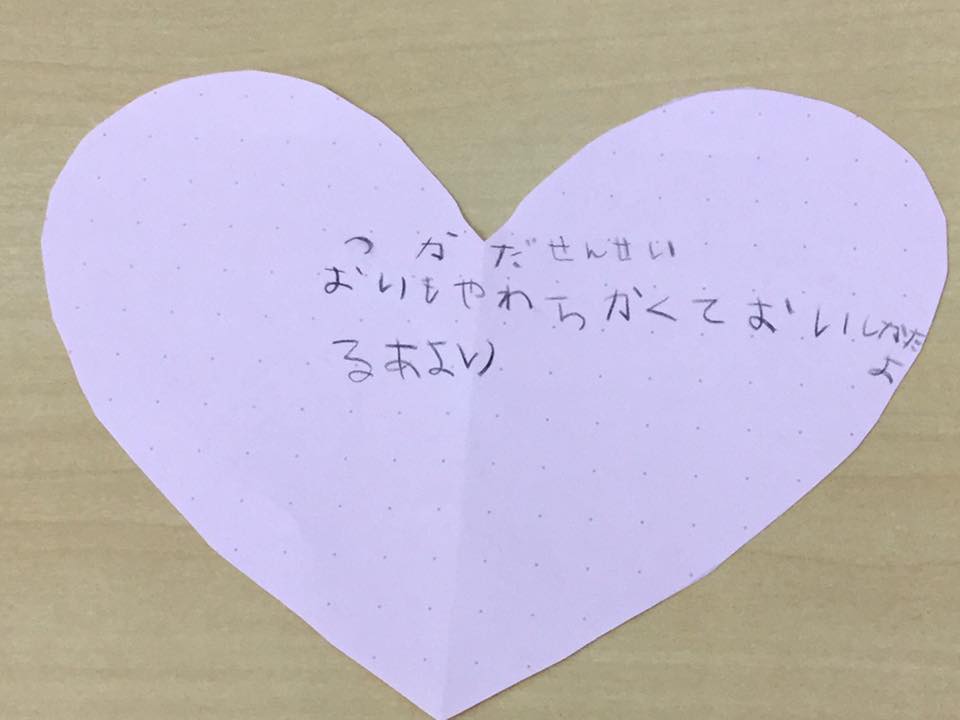 つかだせんせい
おいもやわらかくておいしかた
よ
るあより